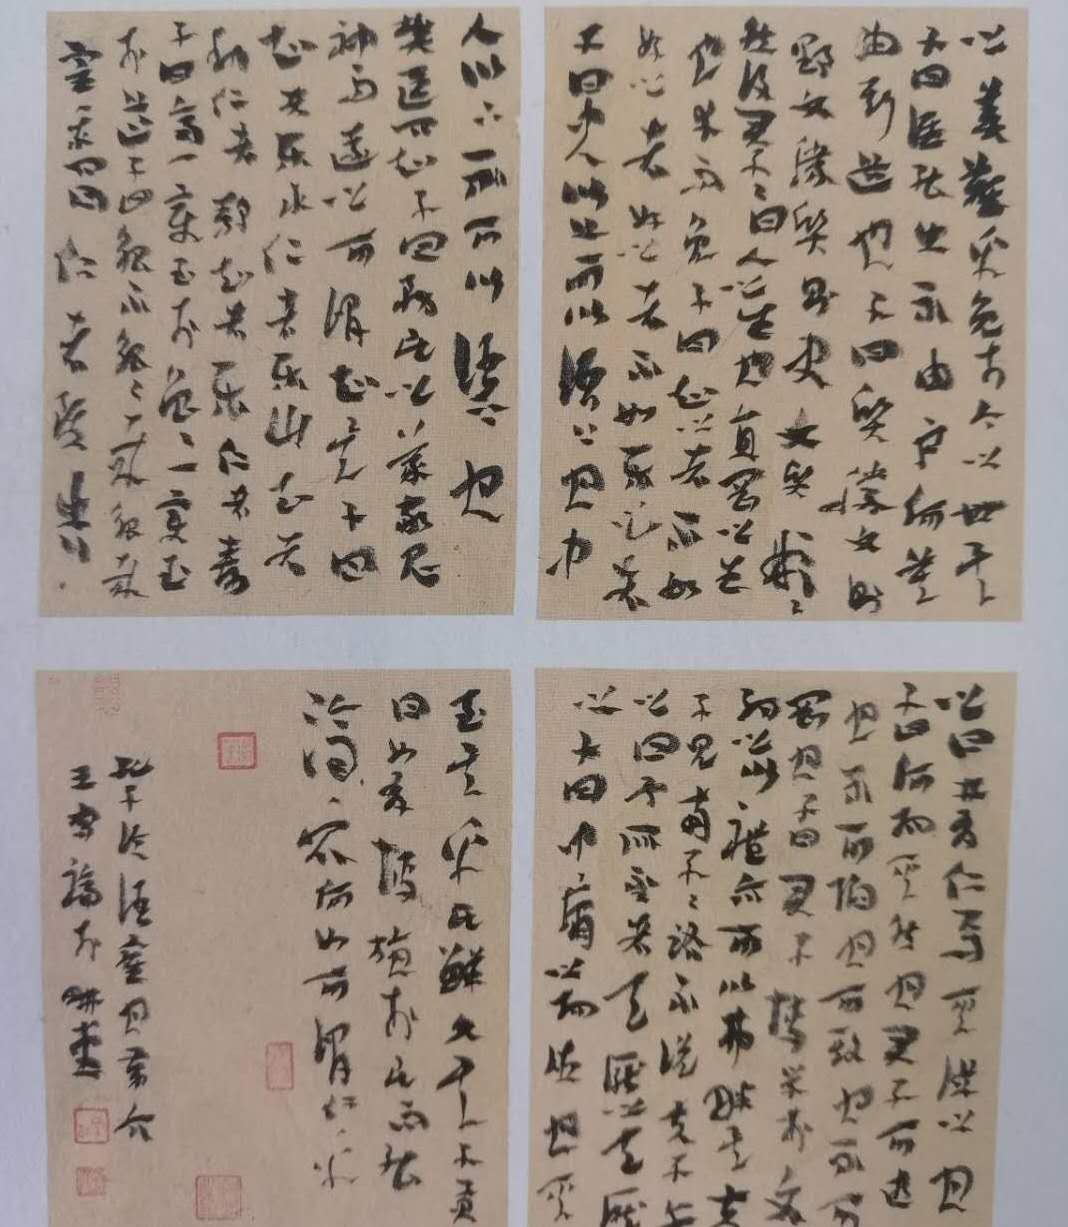 之美難乎免於今之世矣
子曰誰能出不由戶何莫
由斯道也子曰質勝文則
野文勝質則史文質彬彬
然後君子子曰人之生也直罔之生
也幸而免子曰知之者不如
好之者好之者不如樂之者
子曰中人以上可以語上也中
人以下不可以語上也
樊遲問知子曰務民之義敬鬼
神而遠之可謂知矣子曰
知者樂水仁者樂山知者
動仁者靜知者樂仁者壽
子曰齊一變至於魯魯一變至
於道子曰觚不觚觚哉觚哉
宰我問曰仁者雖告
之曰井有仁焉其從之也
子曰何為其然也君子可逝
也不可陷也可欺也不可
罔也子曰君子博學於文
約之以禮亦可以弗畔矣夫
子見南子子路不說夫子矢
之曰予所否者天厭之天厭
之子曰中庸之為德也其
至矣乎民鮮久矣子貢
曰如有博施於民而能
濟眾何如可謂仁乎
孔子論語雍也第六
王